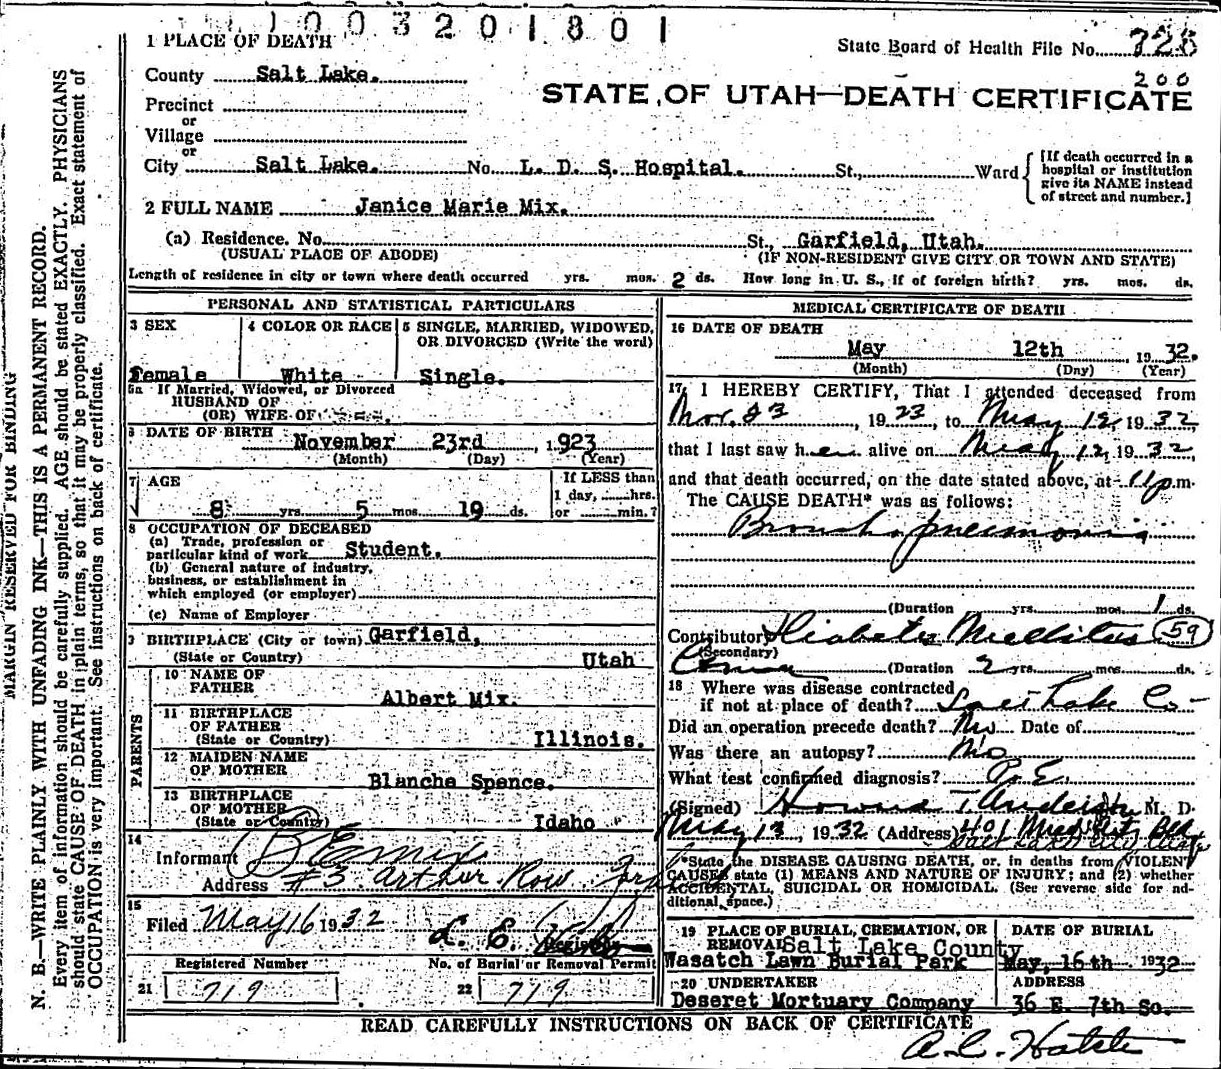 1003201801
1 PLACE OF DEATH
State Board of Health File No. 728
200
County Salt Lake.
STATE OF UTAH—DEATH CERTIFICATE
Precinct
or
Village
or
City Salt Lake. No. L. D. S. Hospital. St., Ward
[If death occurred in a
hospital or institution
give its NAME instead
of street and number.]
2 FULL NAME Janice Marie Mix.
(a) Residence. No. St., Garfield, Utah.
(USUAL PLACE OF ABODE) (IF NON-RESIDENT GIVE CITY OR TOWN AND STATE)
Length of residence in city or town where death occurred yrs. mos. 2 ds. How long in U. S., if of foreign birth? yrs. mos. ds.
PERSONAL AND STATISTICAL PARTICULARS
3 SEX 4 COLOR OR RACE 5 SINGLE, MARRIED, WIDOWED,
OR DIVORCED (Write the word)
Female White Single.
5a If Married, Widowed, or Divorced
HUSBAND OF
(OR) WIFE OF
6 DATE OF BIRTH November 23rd, 1923
(Month) (Day) (Year)
7 AGE If LESS than
1 day, hrs.
8 yrs. 5 mos. 19 ds. or min.?
8 OCCUPATION OF DECEASED
(a) Trade, profession or
particular kind of work Student.
(b) General nature of industry,
business, or establishment in
which employed (or employer)
(c) Name of Employer
9 BIRTHPLACE (City or town) Garfield,
(State or Country) Utah
PARENTS
10 NAME OF
FATHER Albert Mix.
11 BIRTHPLACE
OF FATHER
(State or Country) Illinois.
12 MAIDEN NAME
OF MOTHER Blanche Spence.
13 BIRTHPLACE
OF MOTHER
(State or Country) Idaho
14
Informant Mix
Address #3 Arthur Row
15
Filed May 16 1932 L. E.
Registrar
Registered Number No. of Burial or Removal Permit
21 719 22 719
MEDICAL CERTIFICATE OF DEATH
16 DATE OF DEATH
May 12th, 1932.
(Month) (Day) (Year)
17 I HEREBY CERTIFY, That I attended deceased from
Nov. 23, 1923, to May 12, 1932,
that I last saw her alive on May 12, 1932,
and that death occurred, on the date stated above, at 11 p.m.
The CAUSE DEATH* was as follows:
Broncho pneumonia
(Duration yrs. mos. 1 ds.
Contributory Diabetes Mellitus 59
(Secondary)
Coma (Duration 2 yrs. mos. ds.
18 Where was disease contracted
if not at place of death? Salt Lake Co
Did an operation precede death? No Date of
Was there an autopsy? No
What test confirmed diagnosis? P. E.
(Signed) Howard T Anderson, M. D.
May 13, 1932 (Address) 401 Med Arts Bld
Salt Lake City, Utah
*State the DISEASE CAUSING DEATH, or, in deaths from VIOLENT
CAUSES state (1) MEANS AND NATURE OF INJURY; and (2) whether
ACCIDENTAL, SUICIDAL OR HOMICIDAL. (See reverse side for ad-
ditional space.)
19 PLACE OF BURIAL, CREMATION, OR
REMOVAL Salt Lake County
Wasatch Lawn Burial Park
DATE OF BURIAL
May, 16th 1932
20 UNDERTAKER
Deseret Mortuary Company
ADDRESS
36 E. 7th So.
READ CAREFULLY INSTRUCTIONS ON BACK OF CERTIFICATE
A. C.
MARGIN RESERVED FOR BINDING
N. B.—WRITE PLAINLY WITH UNFADING INK—THIS IS A PERMANENT RECORD.
Every item of information should be carefully supplied. AGE should be stated EXACTLY. PHYSICIANS
should state CAUSE OF DEATH in plain terms, so that it may be properly classified. Exact statement of
OCCUPATION is very important. See instructions on back of certificate.